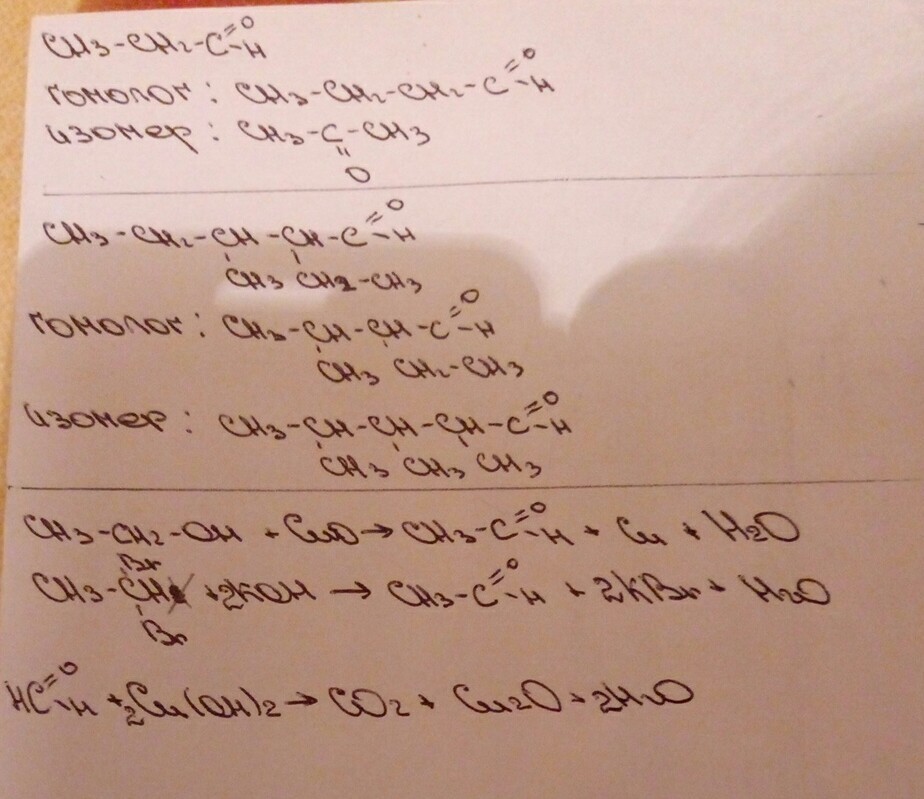 CH3-CH2-C=O-H
гомолог: CH3-CH2-CH2-C=O-H
изомер: CH3-C-CH3
=
O
CH3-CH2-CH-CH-C=O-H
CH3 CH2-CH3
гомолог: CH3-CH-CH-C=O-H
CH3 CH2-CH3
изомер: CH3-CH-CH-CH-C=O-H
CH3 CH3 CH3
CH3-CH2-OH + CuO → CH3-C=O-H + Cu + H2O
Br
CH3-CH +2KOH → CH3-C=O-H + 2KBr + H2O
Br
HC=O-H +2Cu(OH)2 → CO2 + Cu2O +2H2O